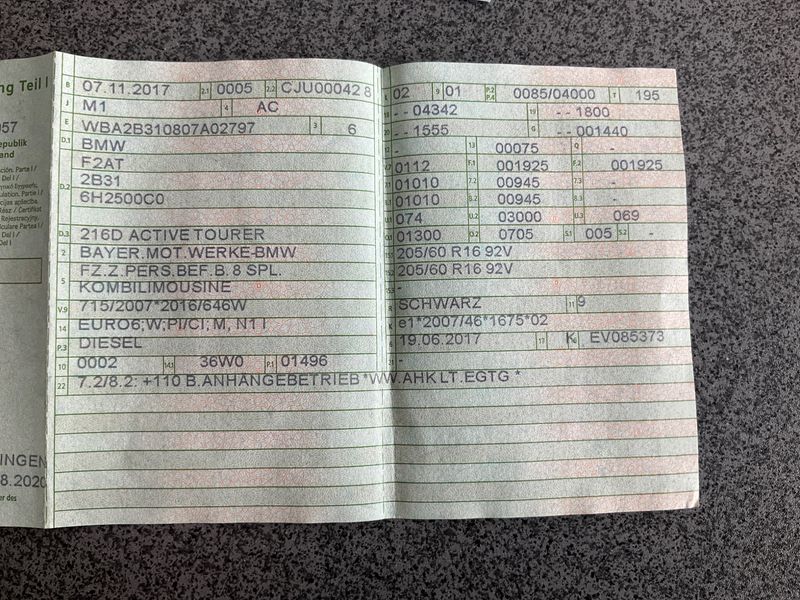 ng Teil I
057
epublik
land
ación. Parte I /
Del I /
ulation. Part I /
cijas apliecība.
Rész / Certifikat
Rejestracyjny,
iculare Partea I /
Del I /
INGEN
8.2020
er des
B 07.11.2017 2.1 0005 2.2 CJU00042 8
J M1 4 AC
E WBA2B310807A02797 3 6
D.1 BMW
F2AT
D.2 2B31
6H2500C0
D.3 216D ACTIVE TOURER
2 BAYER.MOT.WERKE-BMW
5 FZ.Z.PERS.BEF.B. 8 SPL.
KOMBILIMOUSINE
V.9 715/2007*2016/646W
14 EURO6;W;PI/CI; M, N1 I
P.3 DIESEL
10 0002 14.1 36W0 P.1 01496
22 7.2/8.2: +110 B.ANHANGEBETRIEB*WW.AHK LT.EGTG *
L 02 9 01 P.2 P.4 0085/04000 T 195
18 - - 04342 19 - - 1800
20 - - 1555 G - - 001440
- 13 00075 Q -
V.7 0112 F.1 001925 F.2 001925
7.1 01010 7.2 00945 7.3 -
8.1 01010 8.2 00945 8.3 -
U.1 074 U.2 03000 U.3 069
O.1 01300 O.2 0705 S.1 005 S.2 -
15.1 205/60 R16 92V
15.2 205/60 R16 92V
15.3 -
R SCHWARZ 11 9
K e1*2007/46*1675*02
6 19.06.2017 17 K 16 EV085373
21 -